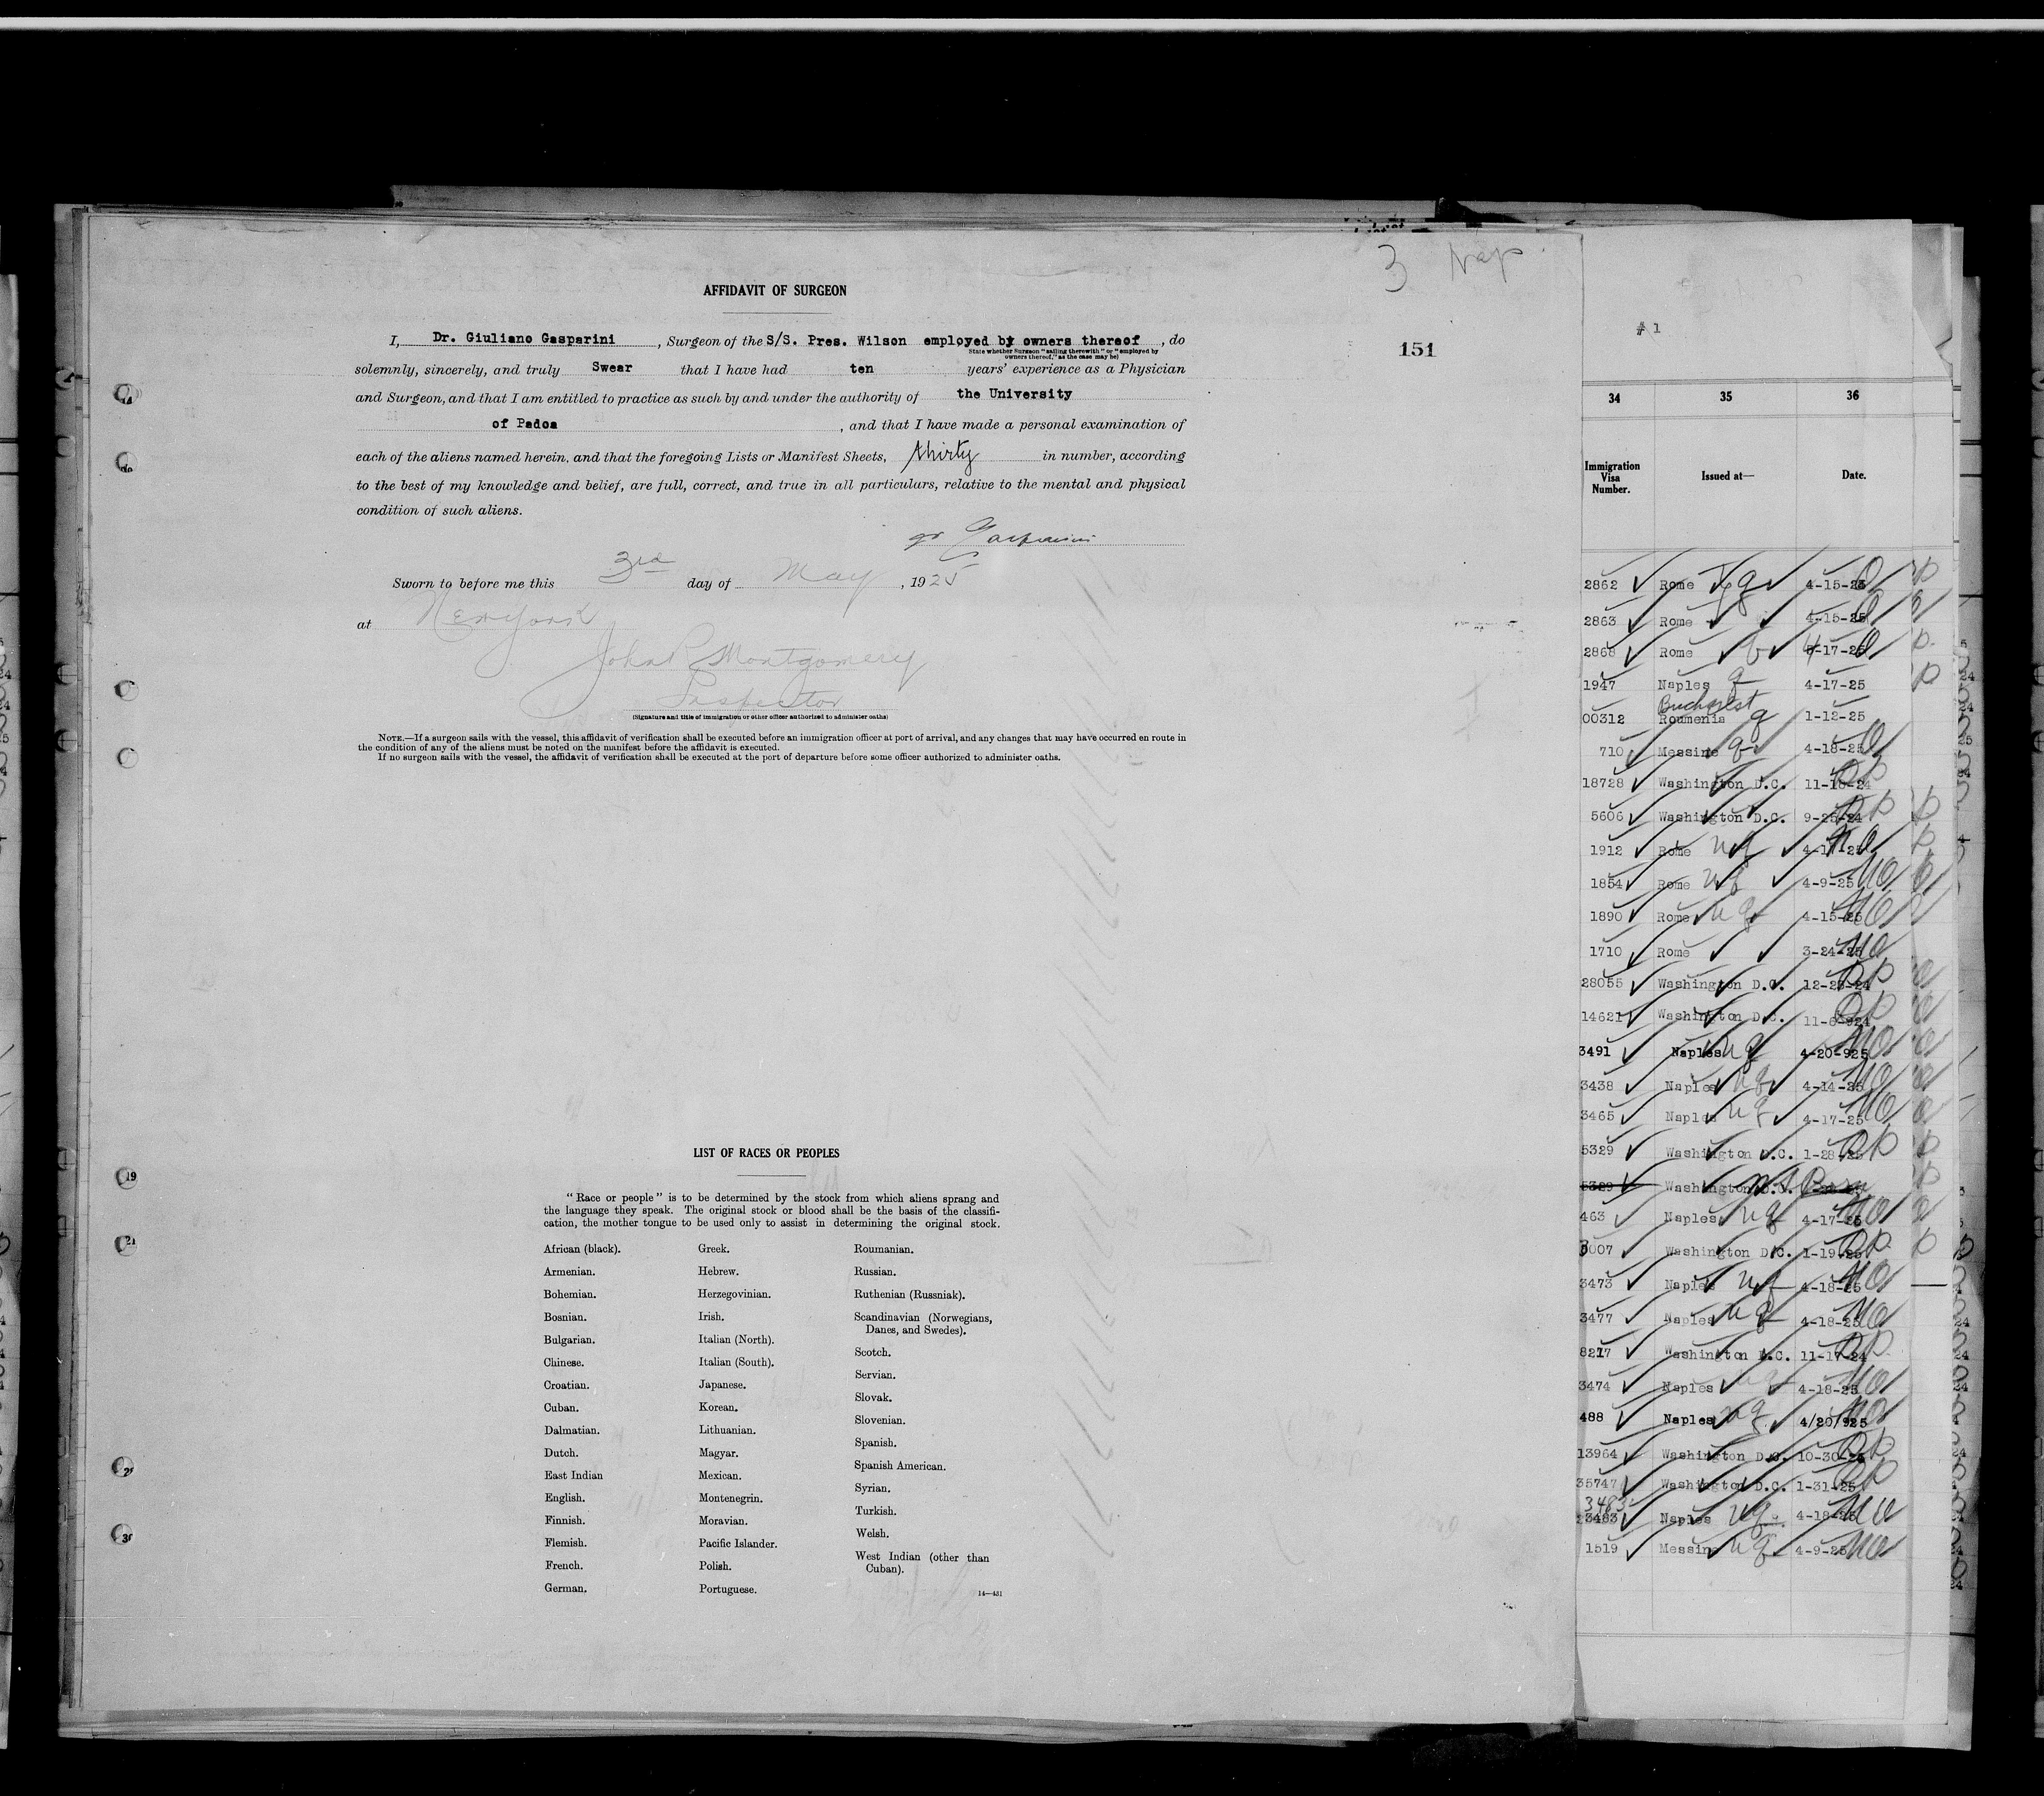 3 Nap
AFFIDAVIT OF SURGEON
151
I, Dr. Giuliano Gasparini, Surgeon of the S/S. Pres. Wilson employed by owners thereof, do
State whether Surgeon "sailing therewith" or "employed by
owners thereof," as the case may be)
solemnly, sincerely, and truly Swear that I have had ten years' experience as a Physician
and Surgeon, and that I am entitled to practice as such by and under the authority of the University
of Padoa, and that I have made a personal examination of
each of the aliens named herein, and that the foregoing Lists or Manifest Sheets, thirty in number, according
to the best of my knowledge and belief, are full, correct, and true in all particulars, relative to the mental and physical
condition of such aliens.
Gasparini
Sworn to before me this 3rd day of May, 1925
at New York
John R Montgomery
Inspector
(Signature and title of immigration or other officer authorized to administer oaths)
NOTE.—If a surgeon sails with the vessel, this affidavit of verification shall be executed before an immigration officer at port of arrival, and any changes that may have occurred en route in
the condition of any of the aliens must be noted on the manifest before the affidavit is executed.
If no surgeon sails with the vessel, the affidavit of verification shall be executed at the port of departure before some officer authorized to administer oaths.
LIST OF RACES OR PEOPLES
"Race or people" is to be determined by the stock from which aliens sprang and
the language they speak. The original stock or blood shall be the basis of the classifi-
cation, the mother tongue to be used only to assist in determining the original stock.
African (black).
Armenian.
Bohemian.
Bosnian.
Bulgarian.
Chinese.
Croatian.
Cuban.
Dalmatian.
Dutch.
East Indian
English.
Finnish.
Flemish.
French.
German.
Greek.
Hebrew.
Herzegovinian.
Irish.
Italian (North).
Italian (South).
Japanese.
Korean.
Lithuanian.
Magyar.
Mexican.
Montenegrin.
Moravian.
Pacific Islander.
Polish.
Portuguese.
Roumanian.
Russian.
Ruthenian (Russniak).
Scandinavian (Norwegians,
Danes, and Swedes).
Scotch.
Servian.
Slovak.
Slovenian.
Spanish.
Spanish American.
Syrian.
Turkish.
Welsh.
West Indian (other than
Cuban).
14—431
# 1
34 35 36
Immigration
Visa
Number.
Issued at—
Date.
2862 Rome 4-15-25
2863 Rome 4-15-25
2868 Rome 4-17-25
1947 Naples 4-17-25
Bucharest
00312 Roumenia 1-12-25
710 Messina 4-18-25
18728 Washington D.C. 11-18-24
5606 Washington D.C. 9-25-24
1912 Rome 4-17-25
1854 Rome 4-9-25
1890 Rome 4-15-25
1710 Rome 3-24-25
28055 Washington D.C. 12-23-24
14621 Washington D.C. 11-6-924
3491 Naples 4-20-925
3438 Naples 4-14-25
3465 Naples 4-17-25
5329 Washington D.C. 1-28-25
5329 Washington D.C.
463 Naples 4-17-25
3007 Washington D.C. 1-19-25
3473 Naples 4-18-25
3477 Naples 4-18-25
8217 Washington D.C. 11-17-24
3474 Naples 4-18-25
488 Naples 4/20/925
13964 Washington D.C. 10-30-
35747 Washington D.C. 1-31-25
3483
3483 Naples 4-18-25
1519 Messina 4-9-25